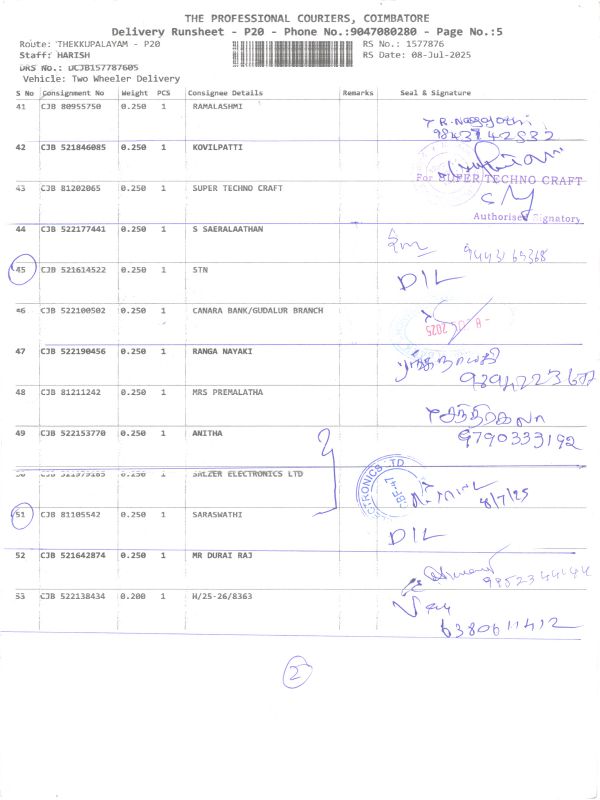 THE PROFESSIONAL COURIERS, COIMBATORE
Delivery Runsheet - P20 - Phone No.:9047080280 - Page No.:5
Route: THEKKUPALAYAM - P20 RS No.: 1577876
Staff: HARISH RS Date: 08-Jul-2025
DRS No.: DCJB157787605
Vehicle: Two Wheeler Delivery
S No Consignment No Weight PCS Consignee Details Remarks Seal & Signature
41 CJB 80955750 0.250 1 RAMALASHMI
9843742532
42 CJB 521846085 0.250 1 KOVILPATTI
For SUPER TECHNO CRAFT
43 CJB 81202065 0.250 1 SUPER TECHNO CRAFT
Authorised Signatory
44 CJB 522177441 0.250 1 S SAERALAATHAN
45 CJB 521614522 0.250 1 STN
D/L
46 CJB 522100502 0.250 1 CANARA BANK/GUDALUR BRANCH
2025
47 CJB 522190456 0.250 1 RANGA NAYAKI
48 CJB 81211242 0.250 1 MRS PREMALATHA
49 CJB 522153770 0.250 1 ANITHA 9790333192
SALZER ELECTRONICS LTD
8/7/25
51 CJB 81105542 0.250 1 SARASWATHI
D/L
52 CJB 521642874 0.250 1 MR DURAI RAJ
53 CJB 522138434 0.200 1 H/25-26/8363
6380611412
2